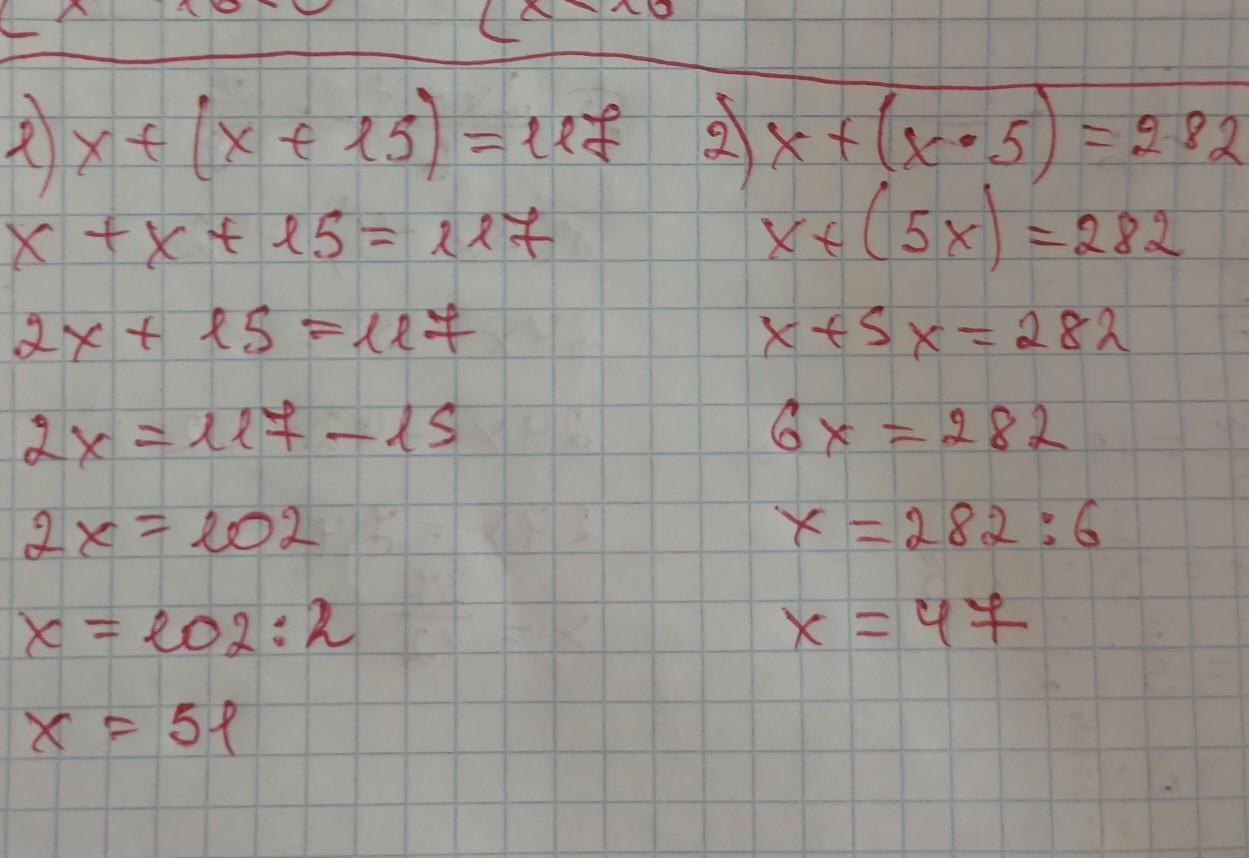 1) x + (x + 15) = 117
x + x + 15 = 117
2x + 15 = 117
2x = 117 - 15
2x = 102
x = 102 : 2
x = 51
2) x + (x · 5) = 282
x + (5x) = 282
x + 5x = 282
6x = 282
x = 282 : 6
x = 47